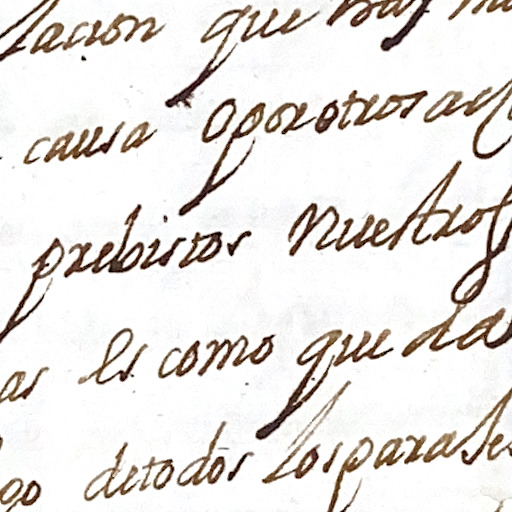 lacion que hay
causa Oporotros
prebistos Nuestros
as es como queda
go detodos losparales